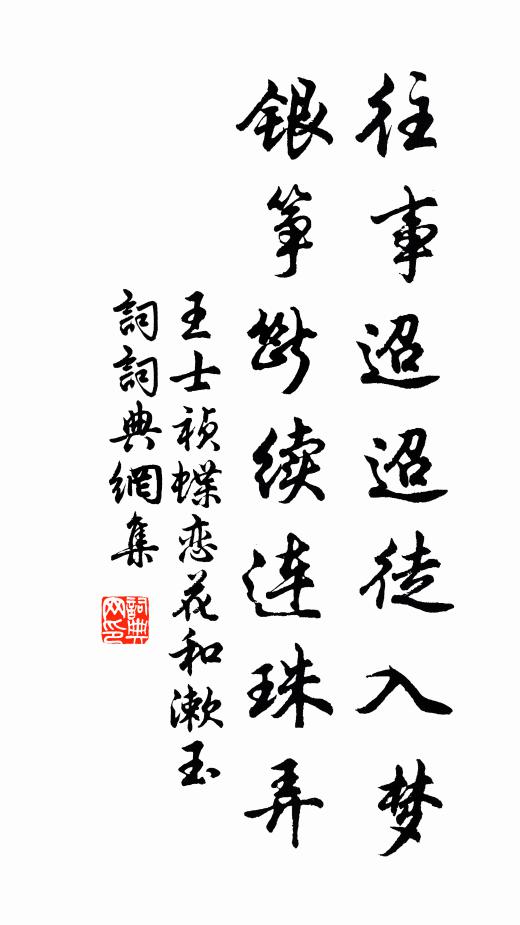 往事迢迢徒入梦
银筝断续连珠弄
王士祯蝶恋花和漱玉
詞詞典網集
詞典網印